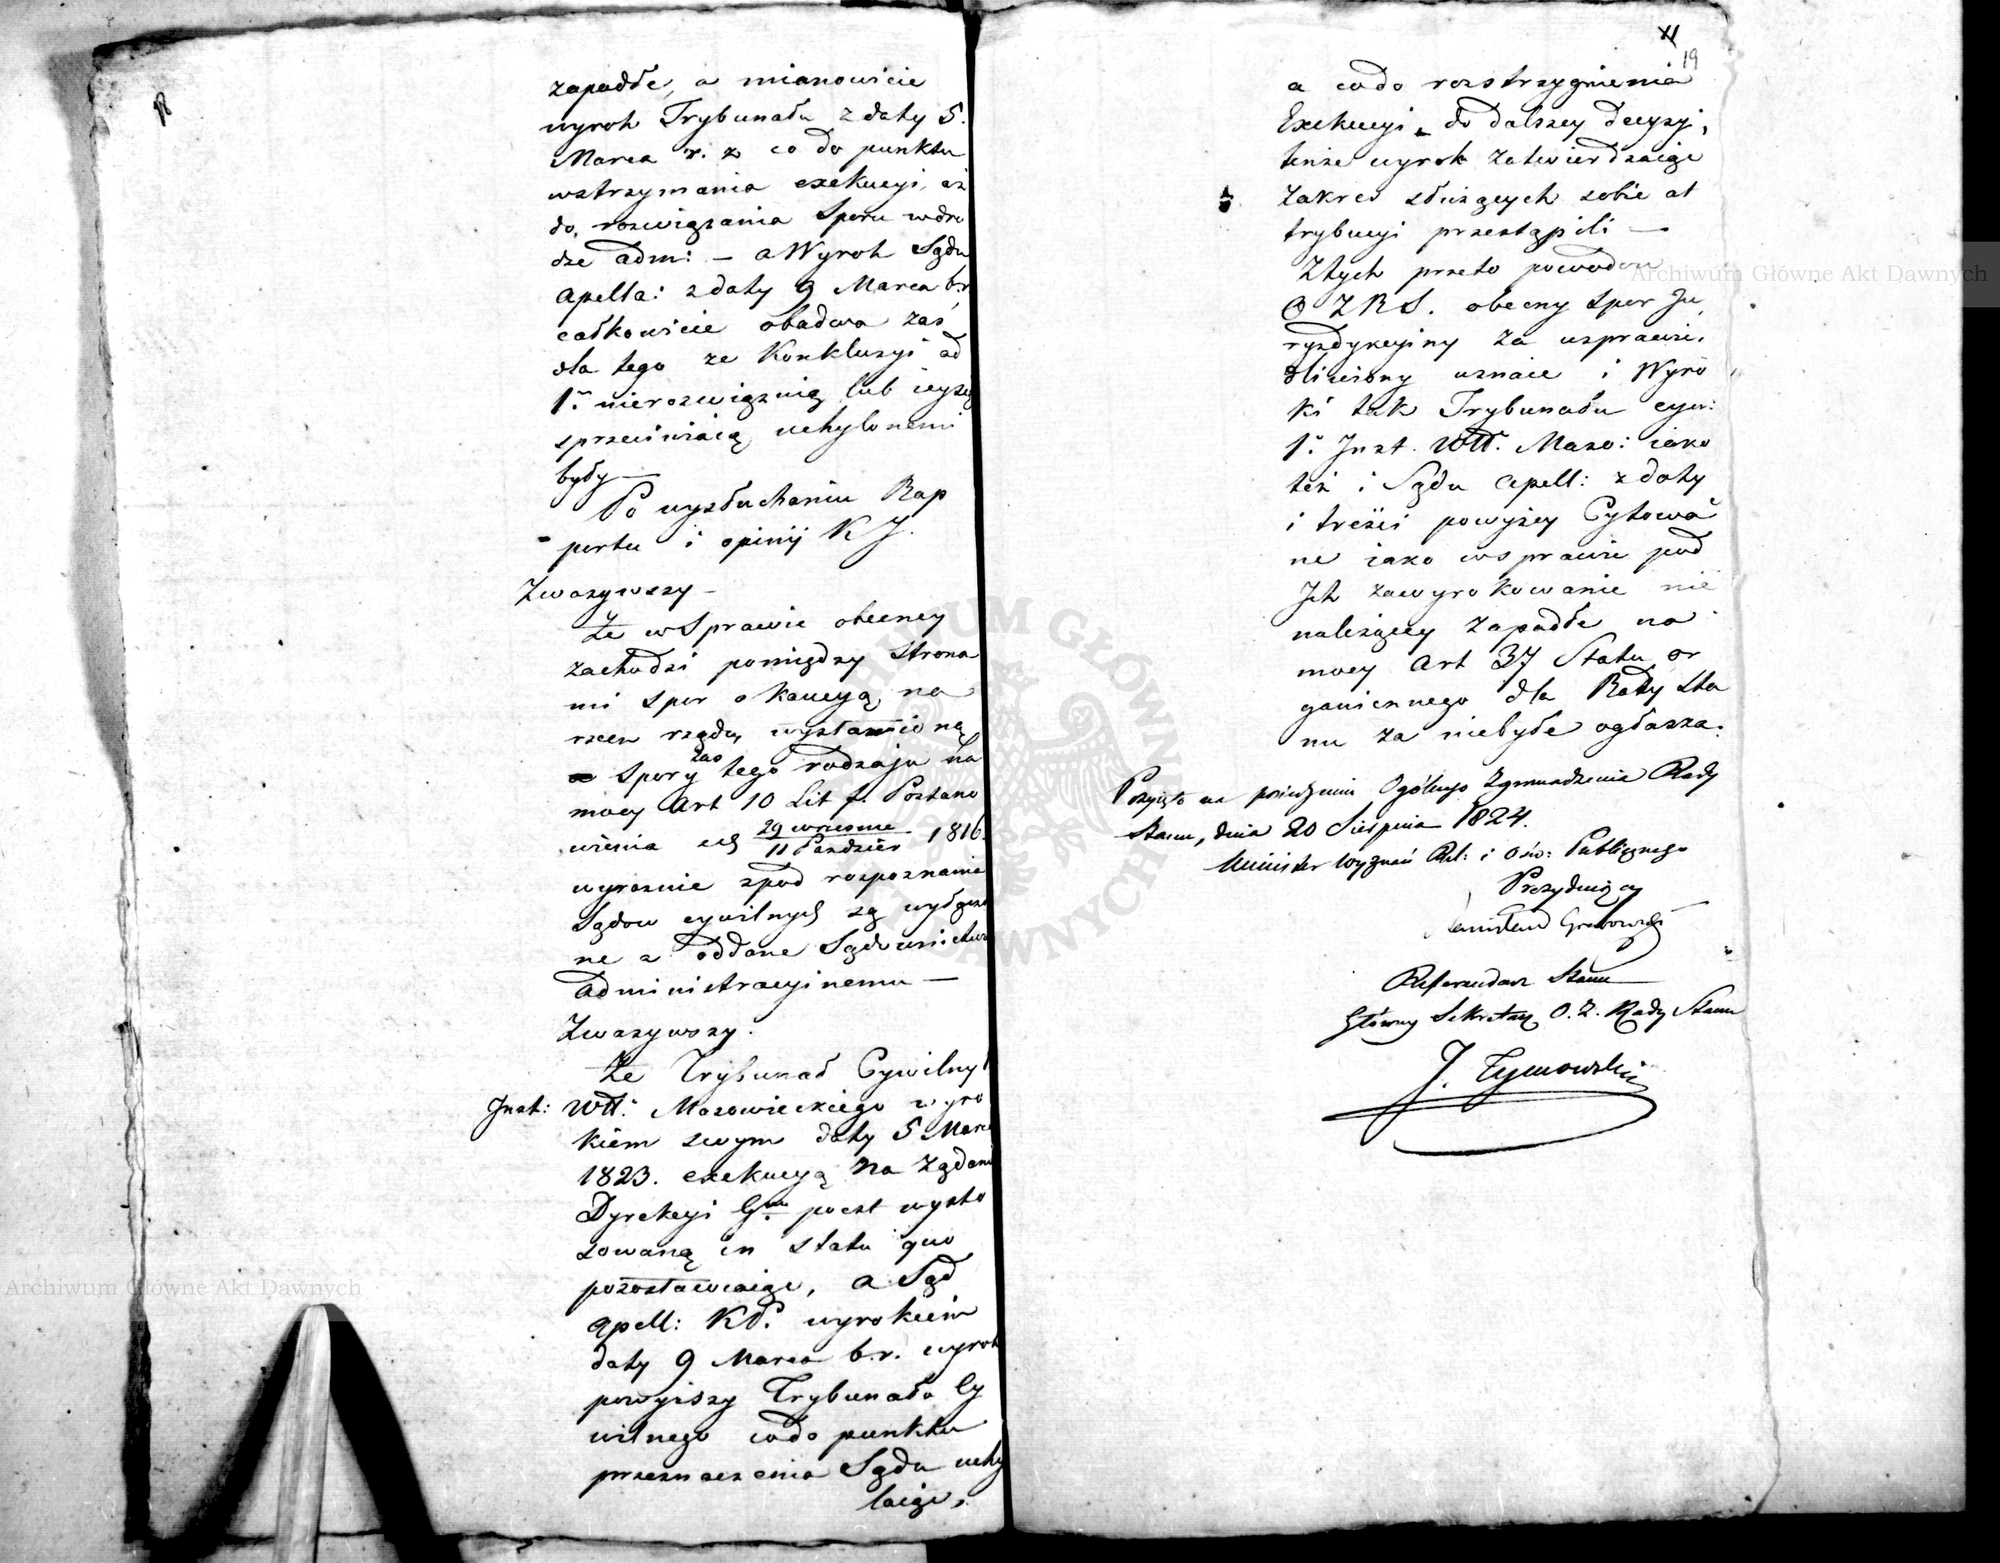 zapadłe, a mianowicie
wyrok Trybunału z daty 5.
Marca r. z co do punktu
wstrzymania exekucyi, aż
do, rozwiązania Sporu wdro
dze adm: — a Wyrok Sądu
Apella: z daty 9 Marca b.r
całkowicie obadwa zaś
dla tego ze Konkluzyi ad
1º nierozwiązuią lub ieyże
sprzeciwiaią, uchylonemi
były —
Po wysłuchaniu Rap
portu i opinij K J.
Zwazywszy —
Że w Sprawie obecney
zachodzi pomiędzy Strona
mi spor o Kaucyą, na
rzecz rządu, wystawioną
Spory zas tego rodzaju na
mocy Art 10 Lit f. Postano
wienia z d 29 wrzesnia / 11 Pazdzier 1816.
wyraznie zpod rozpoznania
Sądow cywilnych są wyłączo
ne a oddane Sądownictwu
Administracyjnemu —
Zwazywszy.
Ze Trybunał Cywilny 1
Inst: Wtt: Mazowieckiego wyro
kiem swym daty 5 Marca
1823. exekucyą na żądani
Dyrekcyi Gnej poczt wysto
sowaną in statu quo
pozostawiaiąc, a Sąd
Apell: KP. wyrokiem
daty 9 Marca b.r. wyrok
powyższy Trybunału Cy
wilnego codo punktu
przeznaczenia Sądu uchy
laiąc,
XI
19
a codo rozstrzygnienia
Exekucyi do dalszey decyzyi,
tenże wyrok zatwierdzaiąc
Zakres służących sobie at
trybucyi przestąpili —
Ztych przeto powodow
O Z R S. obecny spor Ju,
rysdykcyiny za usprawie,
dliwiony uznaie i Wyro
ki tak Trybunału cyw:
1º Inst. Wtt. Mazo: iako
też i Sądu Apell: z daty
i treści powyżey Cytowa
ne iako wsprawie pod
Ich zawyrokowanie nie
należącey zapadłe na
mocy Art 37 Statu or
ganicznego dla Rady Sta
nu za niebyłe ogłasza.
Przyięto na posiedzeniu Ogólnego Zgromadzenia Rady
Stanu, dnia 20 Sierpnia 1824.
Minister Wyznań Rel: i Ośw: Publicznego
Prezyduiący
Stanisław Grabowski
Referendarz Stanu
Główny Sekretarz O. Z. Rady Stanu
J. Tymowski
Archiwum Główne Akt Dawnych
Archiwum Główne Akt Dawnych
ARCHIWUM GŁÓWNE AKT DAWNYCH